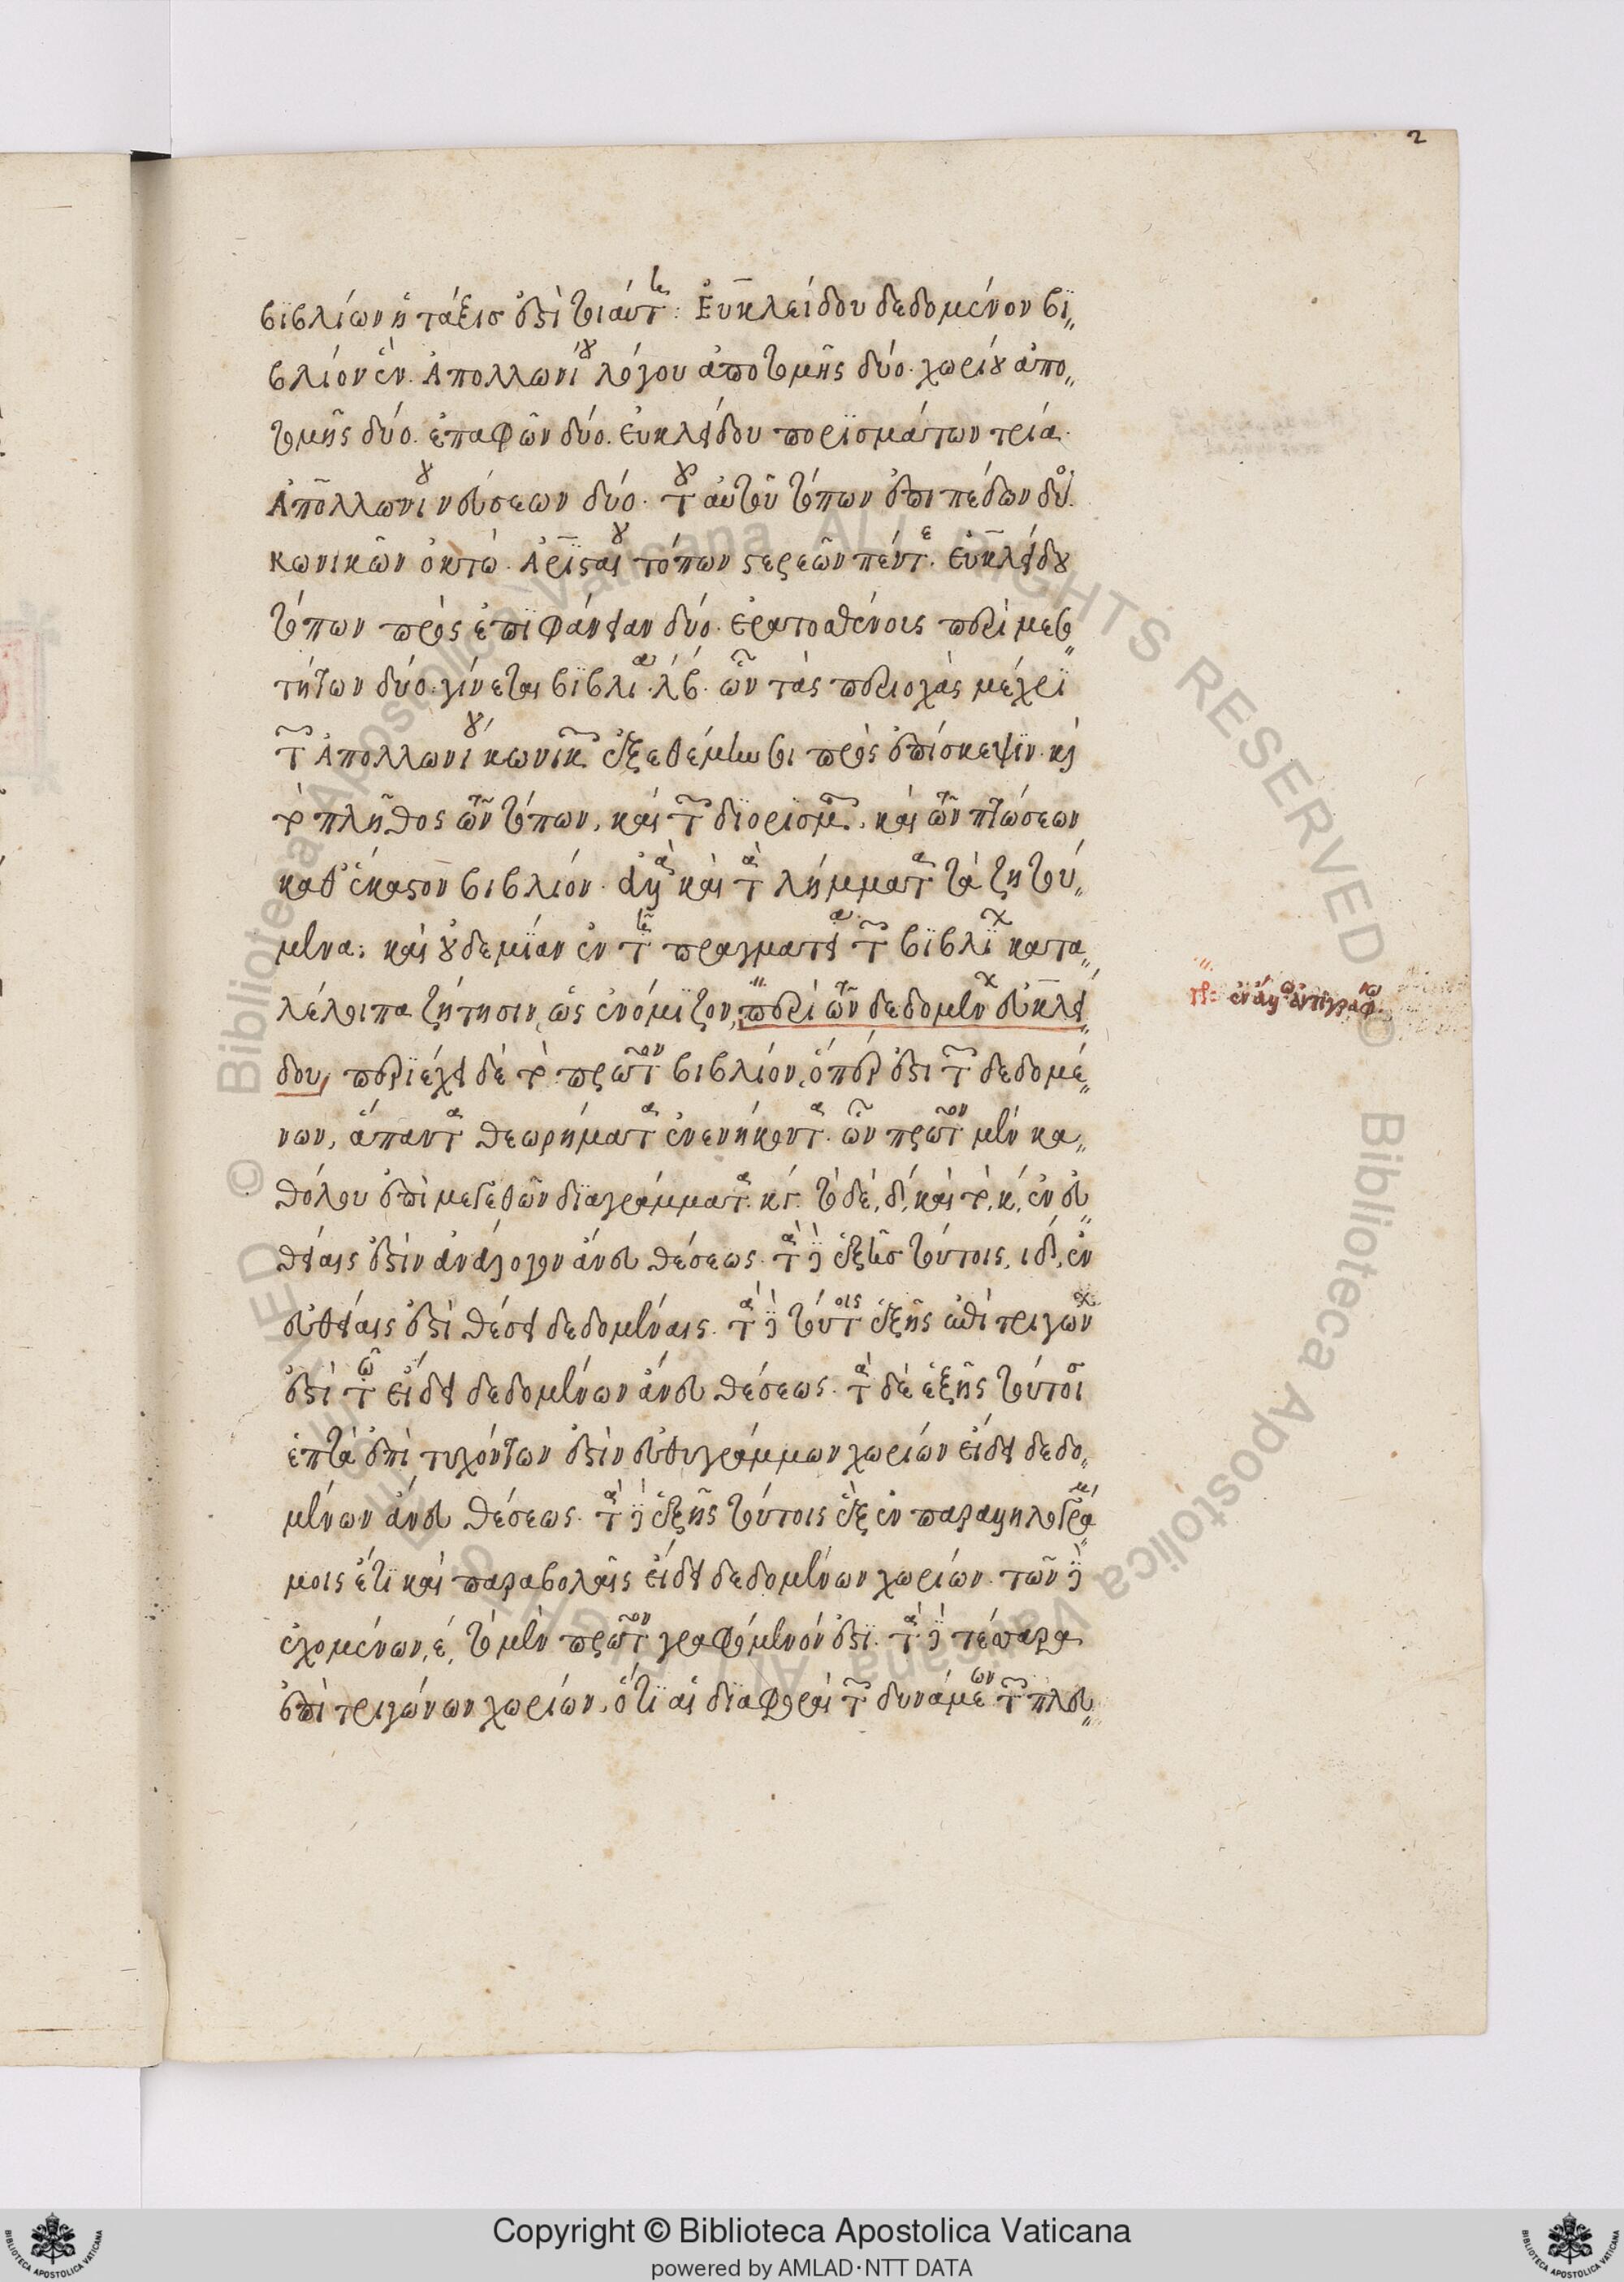 2
βϊβλίων ἡ τάξισ ἐστὶ τοιαύτη: Εὐκλείδου δεδομένον βι
βλίον ἕν. Ἀπολλωνίου λόγου ἀποτομῆς δύο. χωρίου ἀπο
τομῆς δύο. ἐπαφῶν δύο. Εὐκλείδου πορϊσμάτων τρία.
Ἀπολλωνίου νεύσεων δύο. τοῦ αὐτοῦ τόπων ἐπιπέδων δύο.
κωνικῶν ὀκτώ. Ἀρϊσταίου τόπων στερεῶν πέντε. Εὐκλείδου
τόπων πρὸς ἐπϊφάνειαν δύο. Ἐρατοσθένοις περὶ μεσο
τήτων δύο. γίνεται βϊβλία. λ´β´. ὧν τὰς περιοχὰς μέχρϊ
τῶν Ἀπολλωνίου κωνικῶν ἐξεθέμην σοι πρὸς ἐπίσκεψϊν. καὶ
τὸ πλῆθος τῶν τόπων, καὶ τῶν δϊορϊσμῶν. καὶ τῶν πτώσεων
καθ᾽ ἕκαστον βιβλίον. ἀλλὰ καὶ τὰ λήμματα τὰ ζητού
μενα· καὶ οὐδεμΐαν ἐν τῇ πραγματεία τῶν βϊβλΐων κατα
λέλοιπα ζήτησιν, ὡς ἐνόμϊζον, περὶ τῶν δεδομένων Εὐκλεί
δου, περϊέχει δὲ τὸ πρῶτον βιβλίον, ὅπερ ἐστὶ τῶν δεδομέ
νων, ἅπαντα θεωρήματα ἐνενήκοντα. ὧν πρῶτον μὲν κα
θόλου ἐπὶ μεγεθῶν δϊαγράμματα. κγ´. τὸ δὲ, δ´, καὶ τὸ, κ´, ἐν εὐ
θείαις ἐστὶν ἀνάλογον ἄνευ θέσεως. τὰ δὲ ἐξῆσ τούτοις, ιδ´, ἐν
εὐθείαις ἐστὶ θέσει δεδομέναις. τὰ δὲ τούτοις ἑξῆς ἐπὶ τριγώνων
ἐστὶ τῷ εἴδει δεδομένων ἄνευ θέσεως. τὰ δὲ ἑξῆς τούτοις
ἑπτὰ ἐπὶ τυχόντων ἐστὶν εὐθυγράμμων χωρίων εἴδει δεδο
μένων ἄνευ θέσεως. τὰ δὲ ἑξῆς τούτοις ἓξ ἐν παραλληλογράμ
μοις ἔτϊ καὶ παραβολαῖς εἴδει δεδομένων χωρίων. τῶν δὲ
ἐχομένων, ε´, τὸ μὲν πρῶτον γραφόμενόν ἐστϊ. τὰ δὲ τέσσαρα
ἐπὶ τριγώνων χωρίων, ὅτϊ αἱ δϊαφοραὶ τῶν δυνάμεων τῶν πλευ
γρ: ἐν ἄλλῳ ἀντιγράφῳ
Copyright © Biblioteca Apostolica Vaticana
powered by AMLAD·NTT DATA